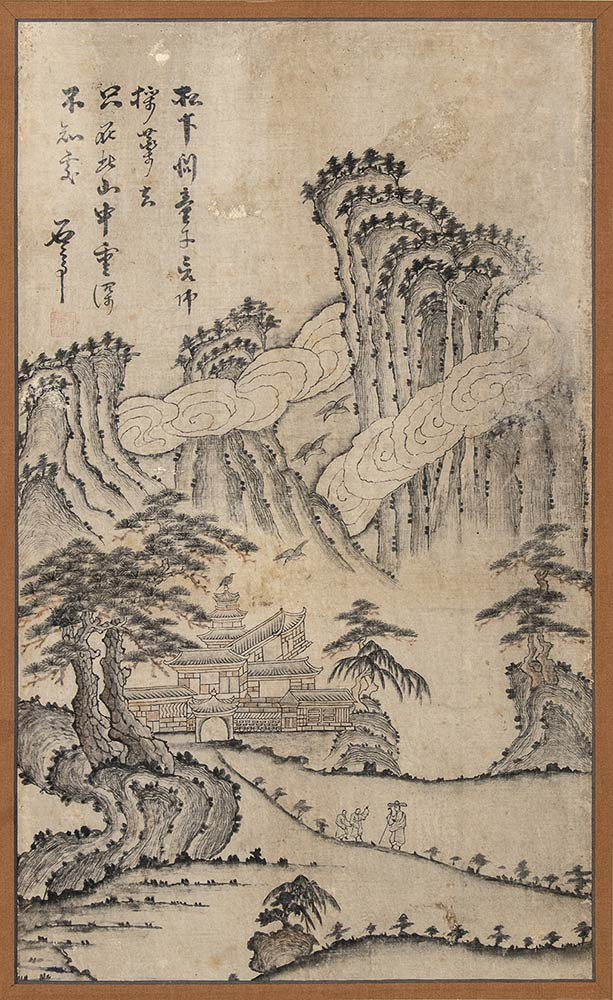 松下問童子言師
採藥去
只在此山中雲深
不知處